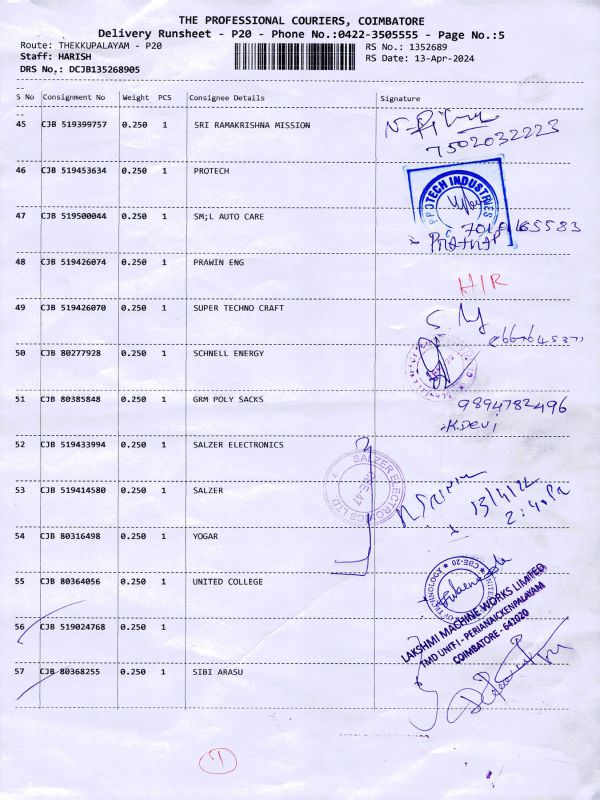 THE PROFESSIONAL COURIERS, COIMBATORE
Delivery Runsheet - P20 - Phone No.:0422-3505555 - Page No.:5
Route: THEKKUPALAYAM - P20 RS No.: 1352689
Staff: HARISH RS Date: 13-Apr-2024
DRS No,: DCJB135268905
S No Consignment No Weight PCS Consignee Details Signature
45 CJB 519399757 0.250 1 SRI RAMAKRISHNA MISSION
7502032223
46 CJB 519453634 0.250 1 PROTECH
PROTECH INDUSTRIES
47 CJB 519500044 0.250 1 SM;L AUTO CARE
48 CJB 519426074 0.250 1 PRAWIN ENG
H/R
49 CJB 519426070 0.250 1 SUPER TECHNO CRAFT
50 CJB 80277928 0.250 1 SCHNELL ENERGY
51 CJB 80385848 0.250 1 GRM POLY SACKS
9894782496
K.Devi
52 CJB 519433994 0.250 1 SALZER ELECTRONICS
SALZER ELECTRONICS LTD.
CBE-47
53 CJB 519414580 0.250 1 SALZER
54 CJB 80316498 0.250 1 YOGAR
55 CJB 80364056 0.250 1 UNITED COLLEGE
CBE-20
OF TECHNOLOGY
56 CJB 519024768 0.250 1
LAKSHMI MACHINE WORKS LIMITED
TMD UNIT-I - PERIANAICKENPALAYAM
COIMBATORE - 641020
57 CJB 80368255 0.250 1 SIBI ARASU